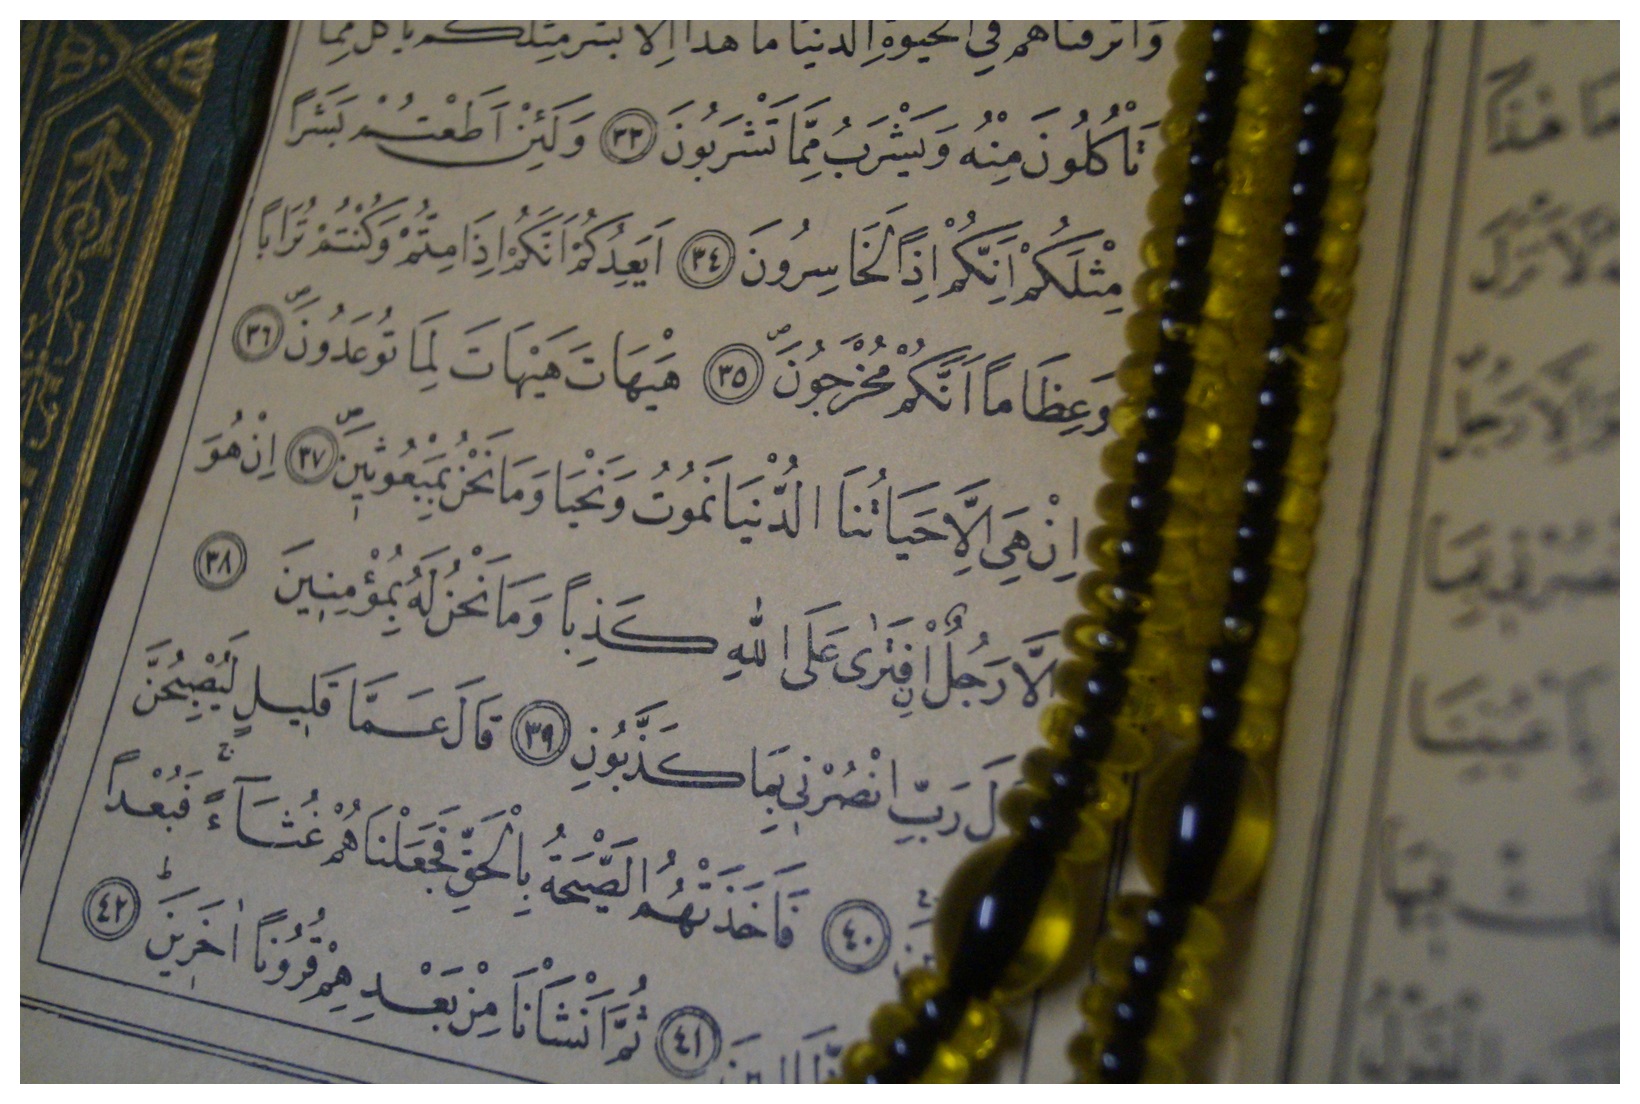 وَاَتْرَفْنَاهُمْ فِي الْحَيٰوةِ الدُّنْيَا مَا هٰذَا اِلَّا بَشَرٌ مِثْلُكُمْ يَأْكُلُ مِمَّا
تَأْكُلُونَ مِنْهُ وَيَشْرَبُ مِمَّا تَشْرَبُونَ ٣٣ وَلَئِنْ اَطَعْتُمْ بَشَراً
مِثْلَكُمْ اِنَّكُمْ اِذاً لَخَاسِرُونَ ٣٤ اَيَعِدُكُمْ اَنَّكُمْ اِذَا مِتُّمْ وَكُنْتُمْ تُرَاباً
وَعِظَاماً اَنَّكُمْ مُخْرَجُونَۖ ٣٥ هَيْهَاتَ هَيْهَاتَ لِمَا تُوعَدُونَۖ ٣٦
اِنْ هِيَ اِلَّا حَيَاتُنَا الدُّنْيَا نَمُوتُ وَنَحْيَا وَمَا نَحْنُ بِمَبْعُوثِينَۖ ٣٧ اِنْ هُوَ
اِلَّا رَجُلٌۨ افْتَرٰى عَلَى اللّٰهِ كَذِباً وَمَا نَحْنُ لَهُ بِمُؤْمِنِينَ ٣٨
لَ رَبِّ انْصُرْنِي بِمَا كَذَّبُونِ ٣٩ قَالَ عَمَّا قَلِيلٍ لَيُصْبِحُنَّ
٤٠ فَاَخَذَتْهُمُ الصَّيْحَةُ بِالْحَقِّ فَجَعَلْنَاهُمْ غُثَآءًۚ فَبُعْداً
٤١ ثُمَّ اَنْشَأْنَا مِنْ بَعْدِهِمْ قُرُوناً اٰخَرِينَۜ ٤٢